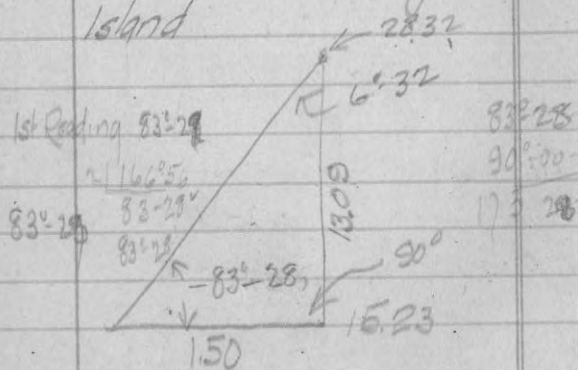 Island
28.32
6°-32
1st Reading 83°-28
2|166°56
83-28
83°-28
83°-28
13.09
83°-28
90°-00
173 28
90°
83°-28
15.23
1.50